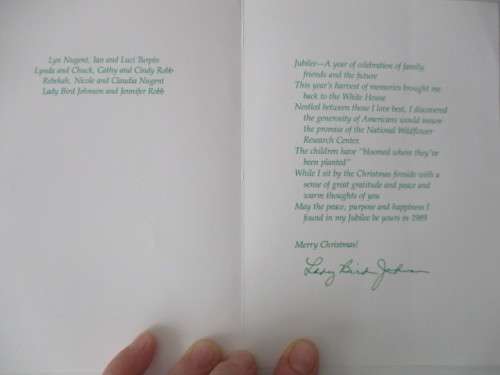 Lyn Nugent, Ian and Luci Turpin
Lynda and Chuck, Cathy and Cindy Robb
Rebekah, Nicole and Claudia Nugent
Lady Bird Johnson and Jennifer Robb
Jubilee—A year of celebration of family,
friends and the future
This year's harvest of memories brought me
back to the White House
Nestled between those I love best, I discovered
the generosity of Americans would assure
the promise of the National Wildflower
Research Center.
The children have "bloomed where they've
been planted"
While I sit by the Christmas fireside with a
sense of great gratitude and peace and
warm thoughts of you
May the peace, purpose and happiness I
found in my Jubilee be yours in 1989
Merry Christmas!
Lady Bird Johnson